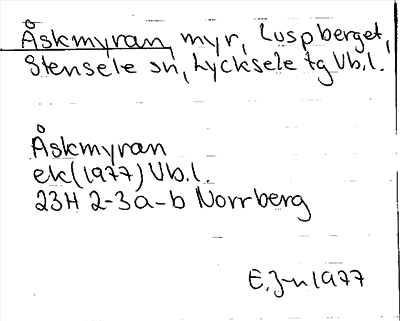 Åskmyran, myr, Luspberget,
Stensele sn, Lycksele tg Vb.l.
Åskmyran
ek(1977) Vb.l.
23H 2-3a-b Norrberg
E.Jn 1977